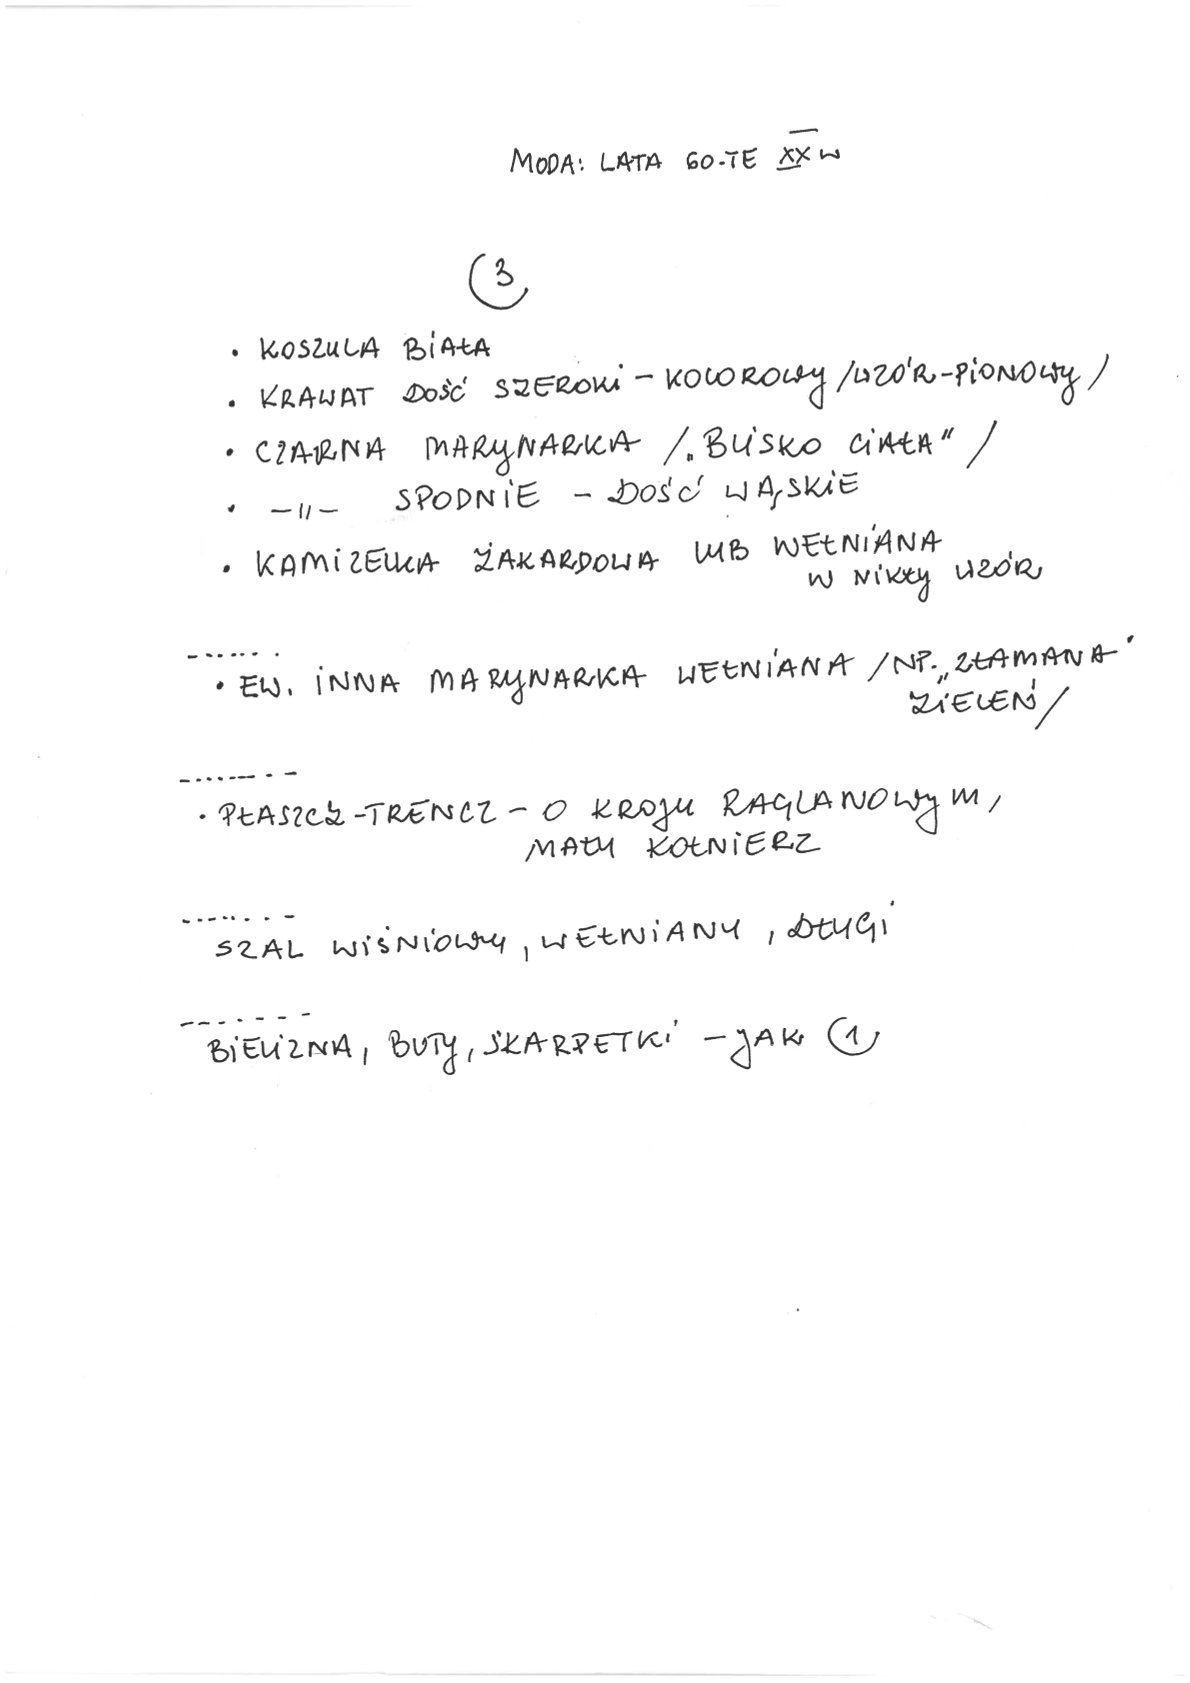 MODA: LATA 60-TE XX W
3
• KOSZULA BIAŁA
• KRAWAT DOŚĆ SZEROKI – KOLOROWY /WZÓR-PIONOWY/
• CZARNA MARYNARKA /„BLISKO CIAŁA"/
• –„– SPODNIE – DOŚĆ WĄSKIE
• KAMIZELKA ŻAKARDOWA LUB WEŁNIANA
W NIKŁY WZÓR
• EW. INNA MARYNARKA WEŁNIANA /NP. „ZŁAMANA"
ZIELEŃ/
• PŁASZCZ-TRENCZ – O KROJU RAGLANOWYM,
MAŁY KOŁNIERZ
SZAL WIŚNIOWY, WEŁNIANY, DŁUGI
BIELIZNA, BUTY, SKARPETKI – JAK 1